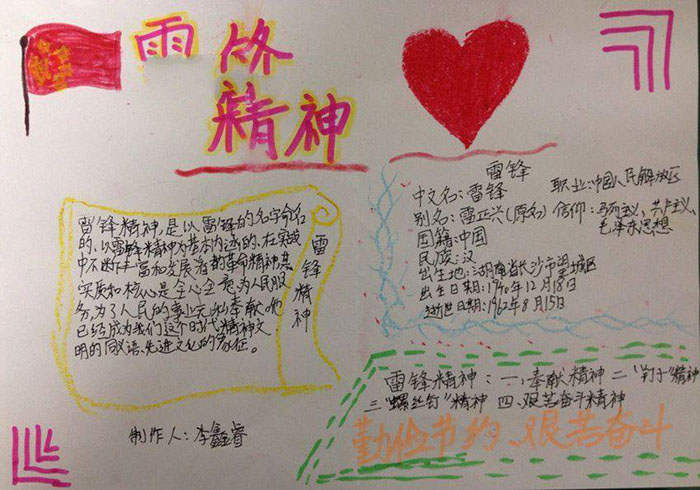 精神
雷锋精神,是以雷锋的名字命名
的、以雷锋精神为基本内涵的、在实践
中不断丰富和发展着的革命精神,其
实质和核心是全心全意为人民服
务,为了人民的事业无私奉献,他
已经成为我们这个时代精神文
明的同义语、先进文化的象征。
雷锋精神
制作人:李鑫睿
雷锋
中文名:雷锋 职业:中国人民解放区
别名:雷正兴(原名) 信仰:马列主义,共产主义,
毛泽东思想
国籍:中国
民族:汉
出生地:湖南省长沙市望城区
出生日期:1940年12月18日
逝世日期:1962年8月15日
雷锋精神:一、奉献精神 二"钉子"精神
三"螺丝钉"精神 四、艰苦奋斗精神
勤俭节约、艰苦奋斗